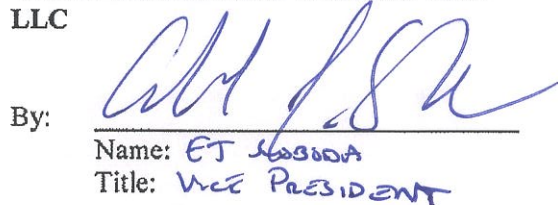 LLC
By:
Name: ET SLOBODA
Title: VICE PRESIDENT